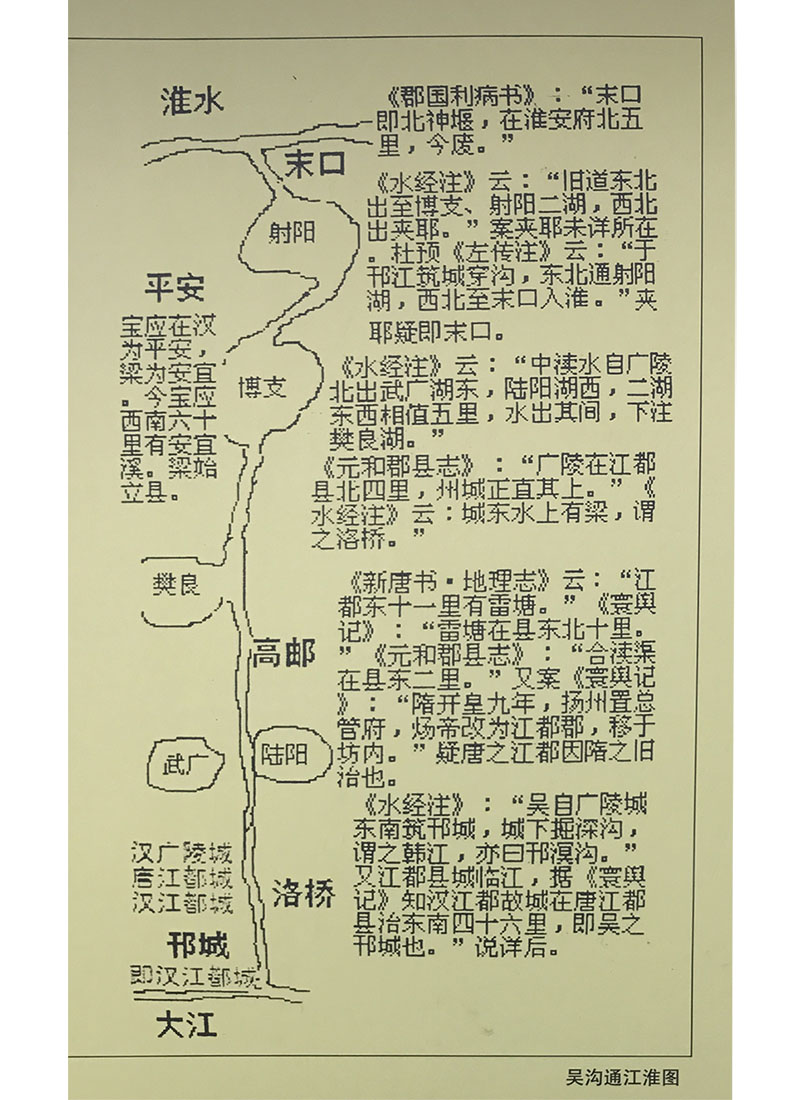 淮水
《郡国利病书》：“末口
即北神堰，在淮安府北五
里，今废。”
末口
《水经注》云：“旧道东北
出至博支、射阳二湖，西北
出夹耶。”案夹耶未详所在
。杜预《左传注》云：“于
邗江筑城穿沟，东北通射阳
湖，西北至末口入淮。”夹
耶疑即末口。
射阳
平安
宝应在汉
为平安，
梁为安宜
。今宝应
西南六十
里有安宜
溪。梁始
立县。
博支
《水经注》云：“中渎水自广陵
北出武广湖东，陆阳湖西，二湖
东西相值五里，水出其间，下注
樊良湖。”
《元和郡县志》：“广陵在江都
县北四里，州城正直其上。”《
水经注》云：城东水上有梁，谓
之洛桥。”
樊良
《新唐书·地理志》云：“江
都东十一里有雷塘。”《寰舆
记》：“雷塘在县东北十里。
”《元和郡县志》：“合渎渠
在县东二里。”又案《寰舆记
》：“隋开皇九年，扬州置总
管府，炀帝改为江都郡，移于
坊内。”疑唐之江都因隋之旧
治也。
高邮
武广
陆阳
《水经注》：“吴自广陵城
东南筑邗城，城下掘深沟，
谓之韩江，亦曰邗溟沟。”
又江都县城临江，据《寰舆
记》知汉江都故城在唐江都
县治东南四十六里，即吴之
邗城也。”说详后。
汉广陵城
唐江都城
汉江都城
洛桥
邗城
即汉江都城
大江
吴沟通江淮图